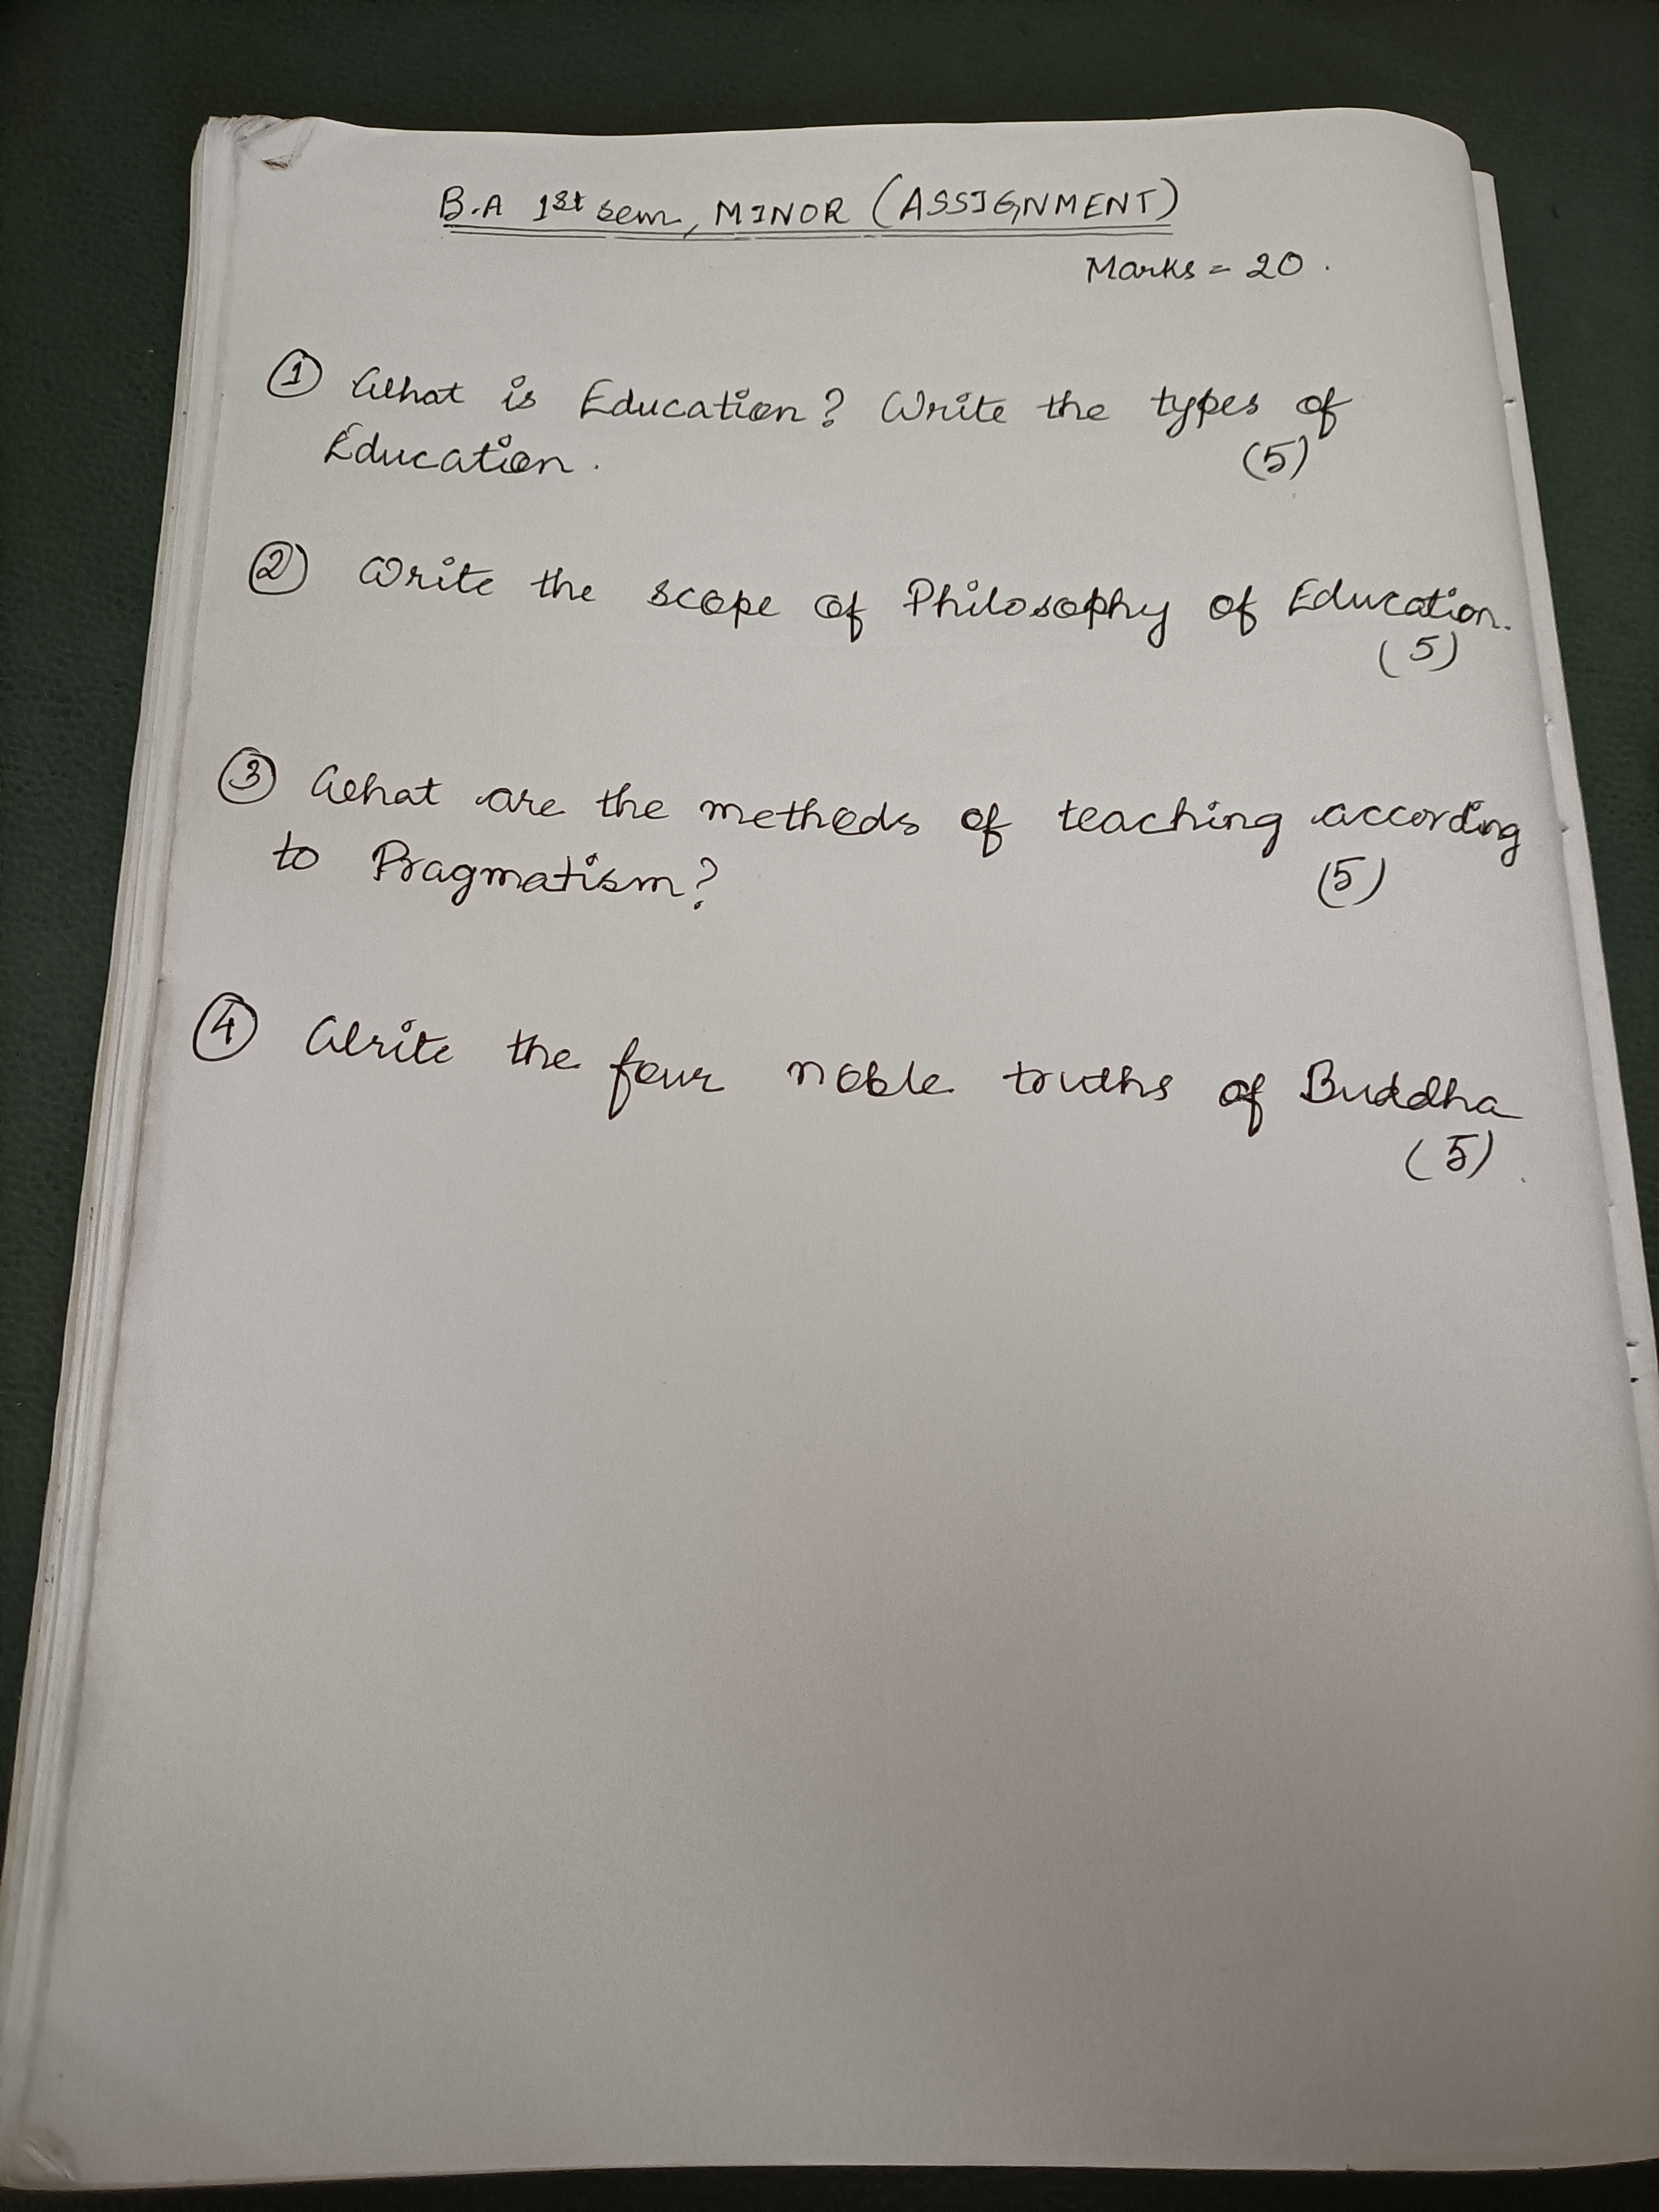 B.A 1st sem, MINOR (ASSIGNMENT)
Marks = 20.
① What is Education? Write the types of
Education. (5)
② Write the scope of Philosophy of Education.
(5)
③ What are the methods of teaching according
to Pragmatism? (5)
④ Write the four noble truths of Buddha
(5).